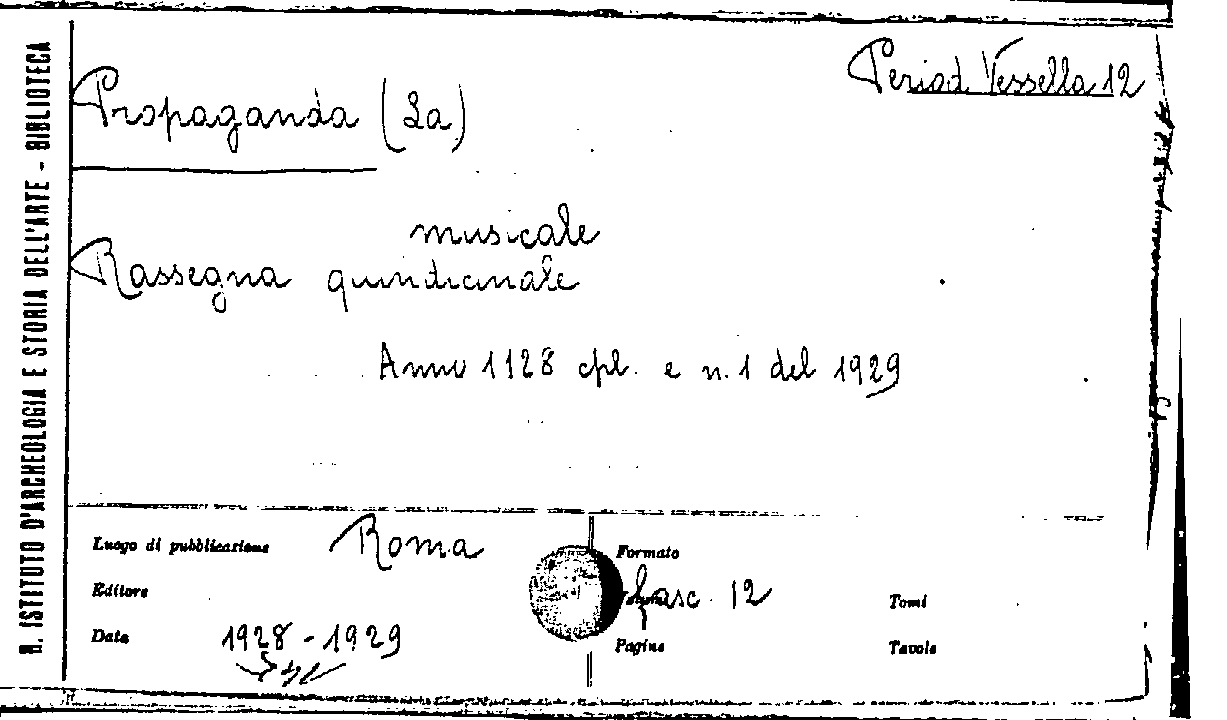 R. ISTITUTO D'ARCHEOLOGIA E STORIA DELL'ARTE - BIBLIOTECA
Period. Vessella 12
Propaganda (La)
musicale
Rassegna quindicinale
Anno 1928 cpl. e n. 1 del 1929
Luogo di pubblicazione Roma
Formato
Editore
Volumi fasc. 12
Tomi
Data 1928 - 1929
Pagine
Tavole